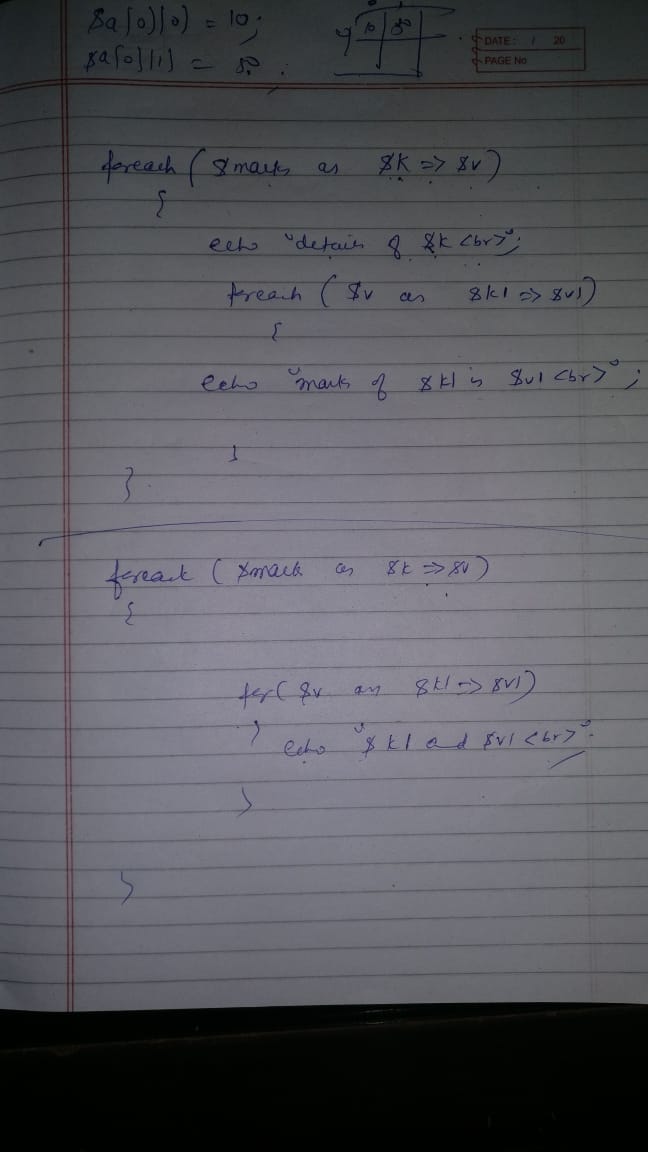 $a[0][0] = 10;
$a[0][1] = 50;
10 50
DATE: / 20
PAGE No
foreach ( $marks as $k => $v)
{
echo "details of $k <br>";
foreach ( $v as $k1 => $v1)
{
echo "mark of $k1 is $v1 <br>";
}
}
foreach ( $mark as $k => $v)
{
for( $v as $k1 => $v1)
}
echo "$k1 and $v1 <br>"
}
}